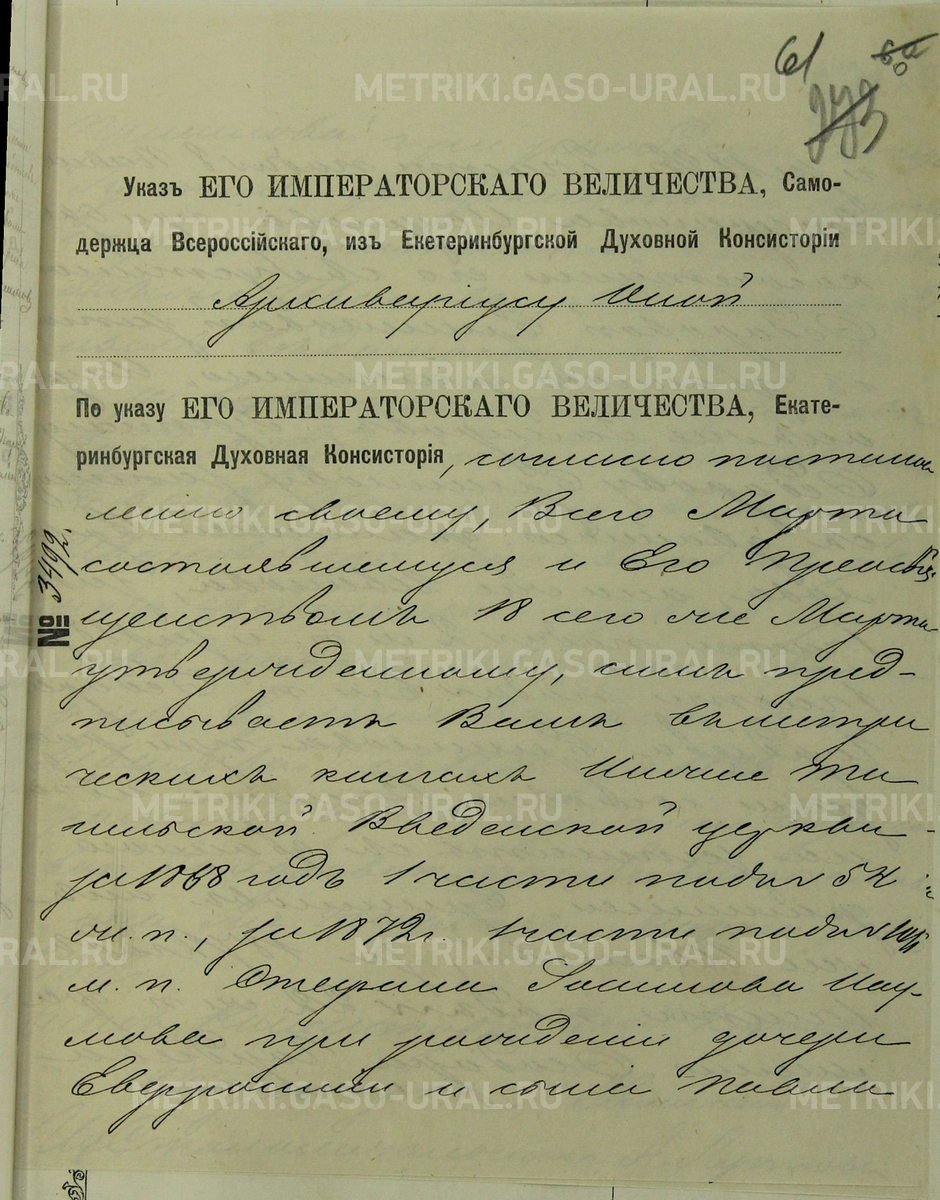 61
Указъ ЕГО ИМПЕРАТОРСКАГО ВЕЛИЧЕСТВА, Само-
держца Всероссійскаго, изъ Екетеринбургской Духовной Консисторіи
Архиваріусу Оной
По указу ЕГО ИМПЕРАТОРСКАГО ВЕЛИЧЕСТВА, Екате-
ринбургская Духовная Консисторія, согласно постанов
ленію своему, Марта
состоявшемуся и Его Преосвя
щенствомъ 18 сего же Марта
утвержденному, симъ пред-
писываетъ Вамъ въ метри
ческихъ книгахъ Нижне Та
гильской Введенской церкви
за 1868 годъ 1 части подъ № 5
м. п., за 1872 г. 1 части подъ №
м. п. Стефана Зосимова Нау-
мова при рожденіи дочери
Евфросиніи и сына Павла
№ 3492.
METRIKI.GASO-URAL.RU